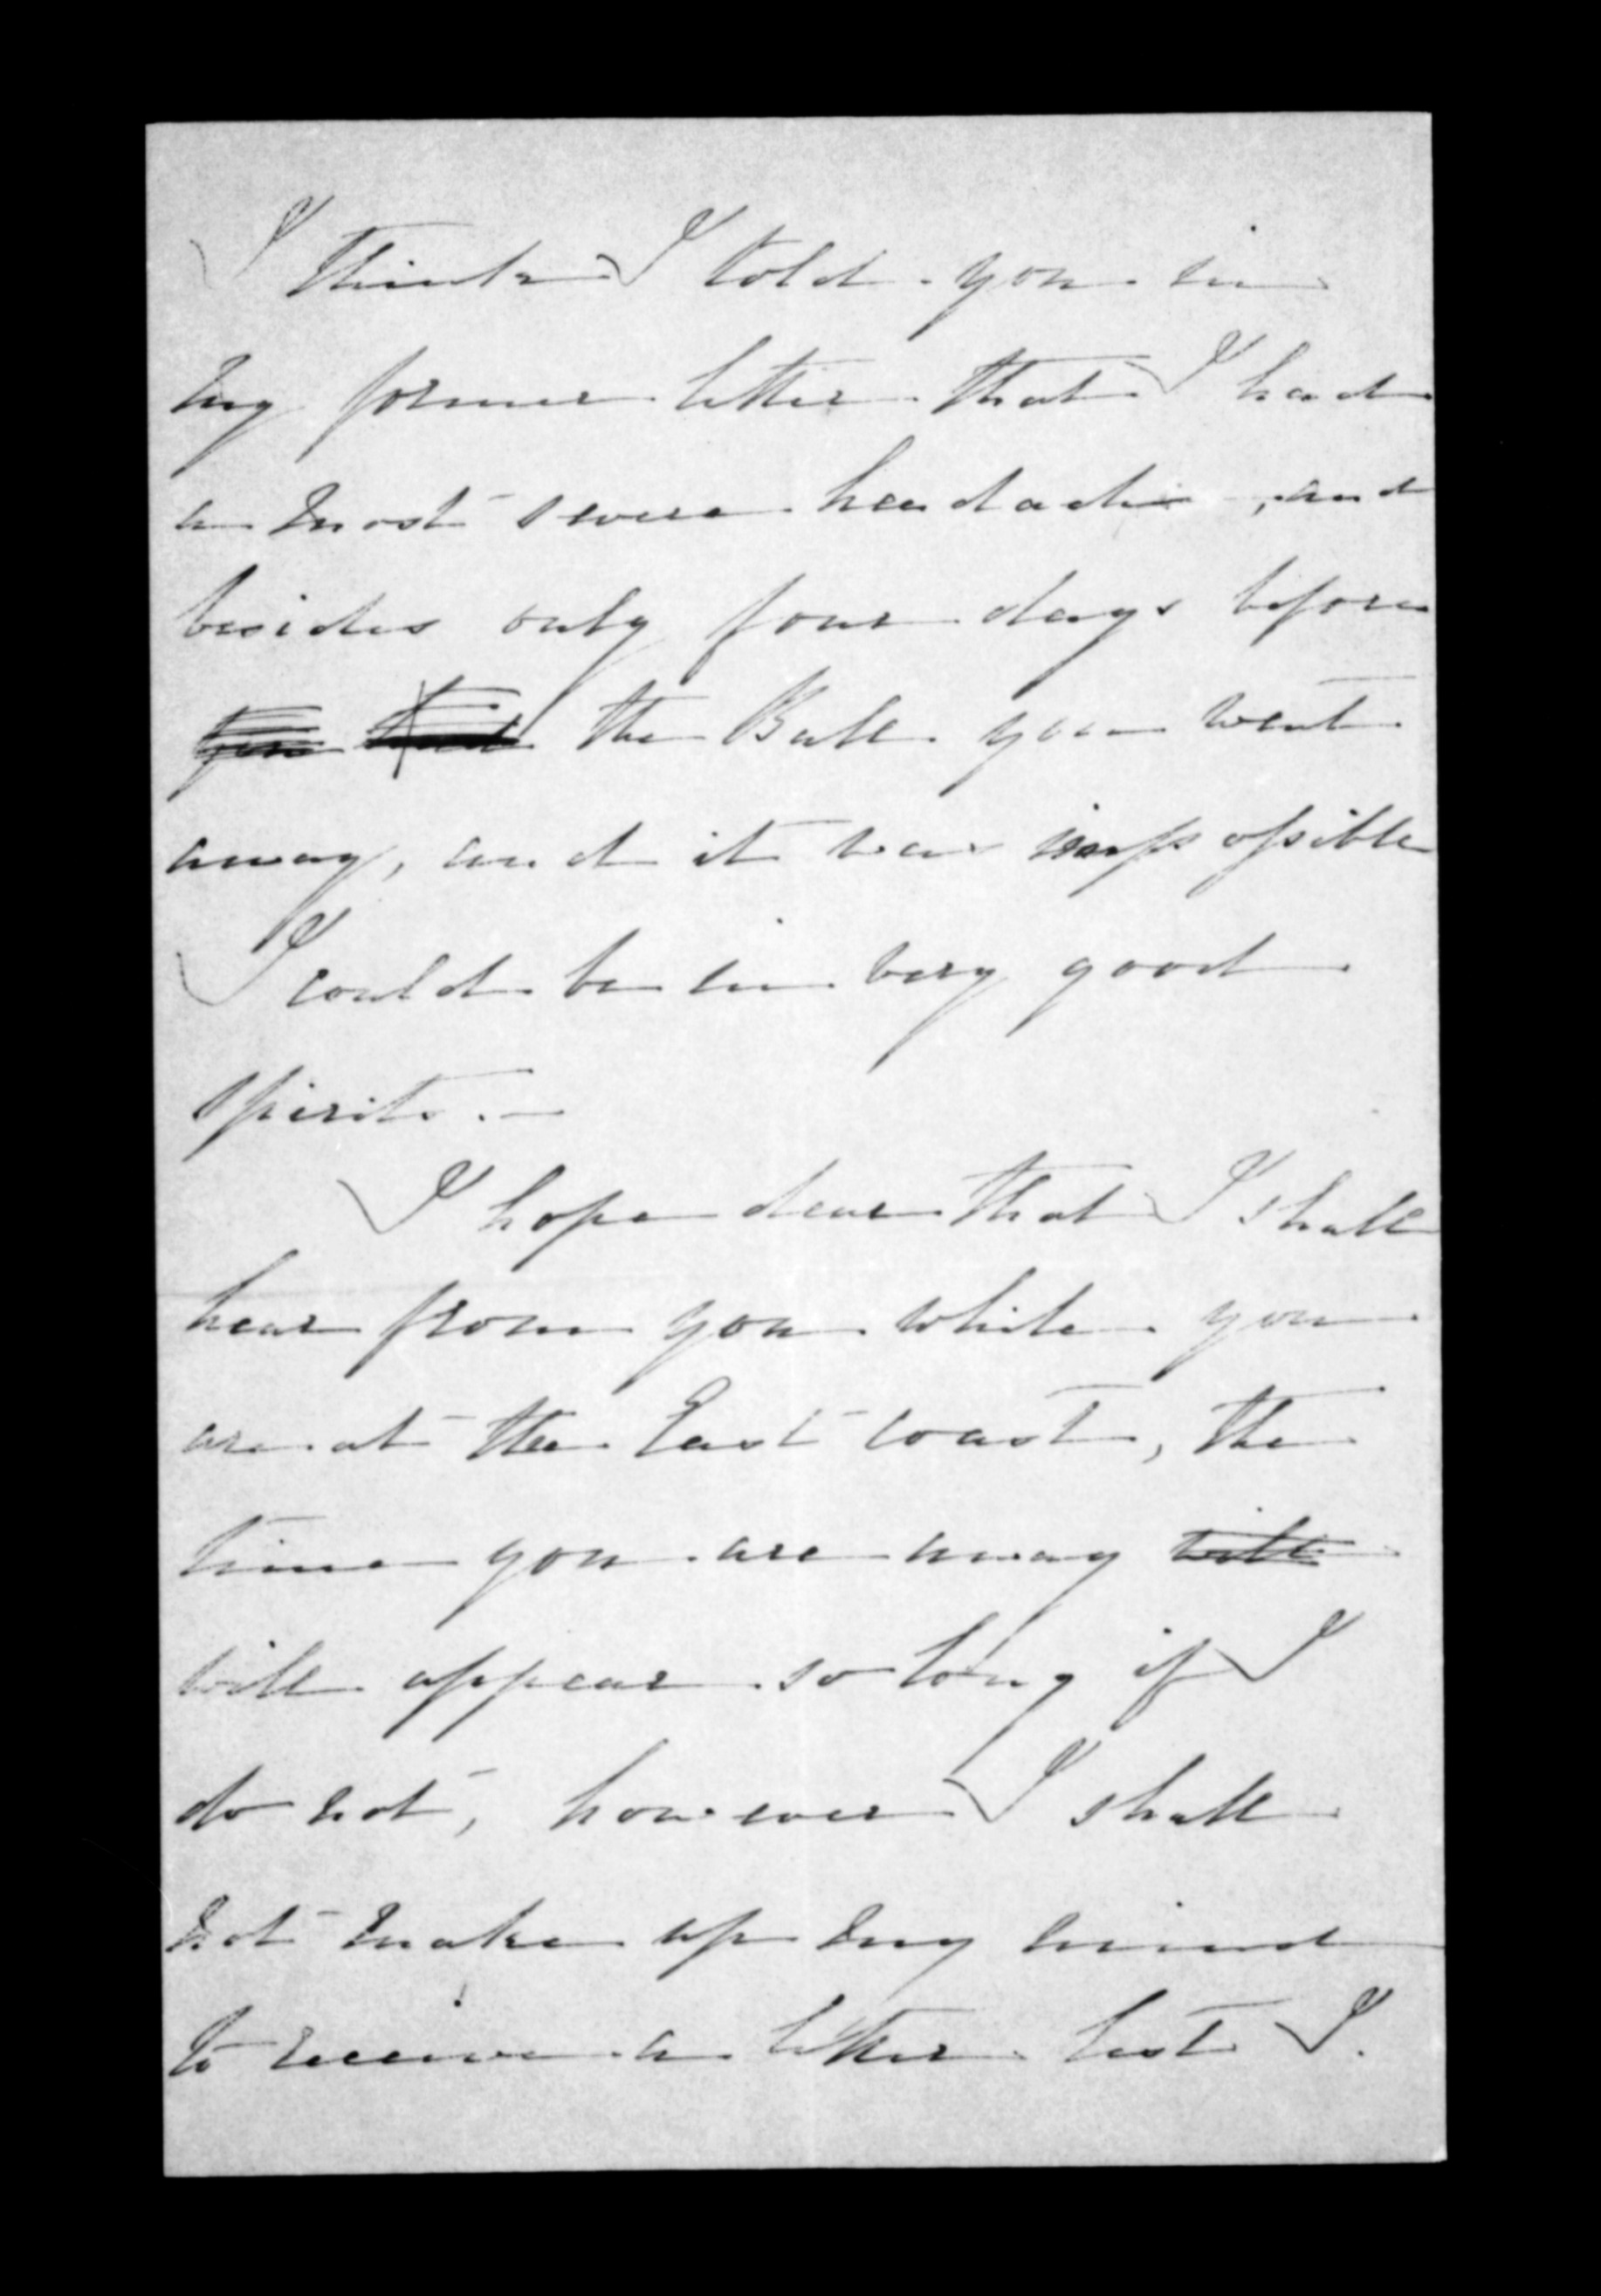 I think I told you in
my former letter that I had
a most severe headache, and
besides only four days before
the Ball you went
away, and it was impossible
I could be in very good
spirits. —
I hope dear that I shall
hear from you while you
are at the East Coast, the
time you are away will
will appear so long if I
do not, however I shall
not make up my mind
to receive a letter lest I